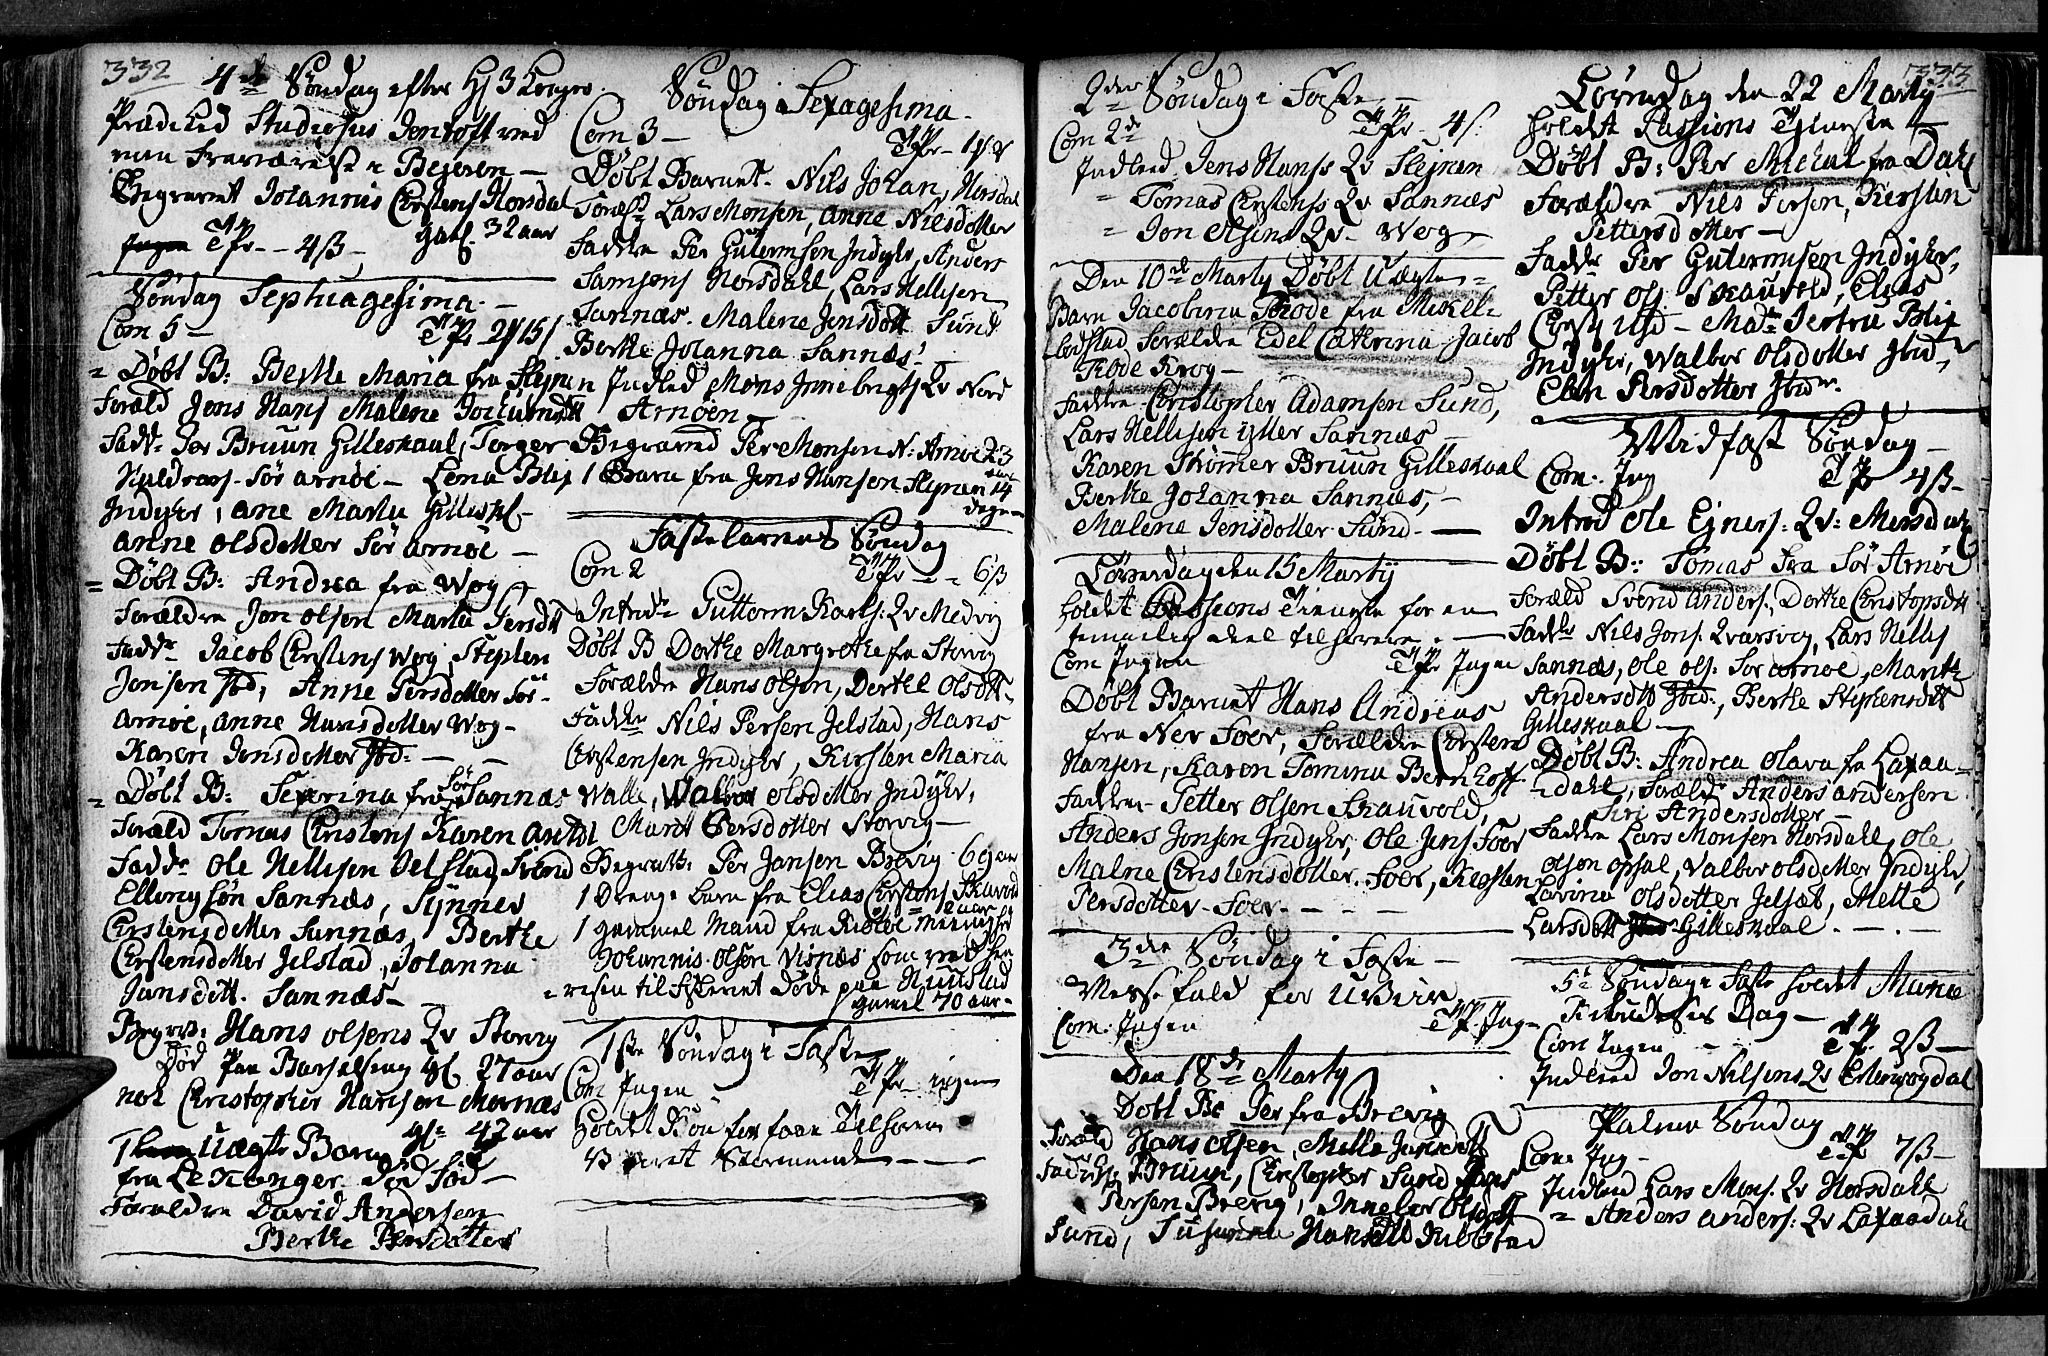 332
4de Søndag efter Hj 3 Konger
Prædiked Studiosus Jentoft ved
min Fraværelse i Bejeren –
Begravet Johannis Chrstens Horsdal
gael. 32 aar
TPr – 4 ß –
Søndag Septuagesima –
Com 5 –
= Døbt B: Berthe Maria fra Flejnen
Foræld Jens Hans Malene Jochumsdtt
Fadd: Per Bruun Gilleskaal, Torger
Sør Arnøe – Lena Blix
Indyhr, Ane Marta Gilleskl –
Anne Olsdotter Sør Arnøe –
= Døbt B: Andrea fra Wog
Forældre Jon Olsen Marta Persdtt
Fadd: Jacob Chrstens Wog Stephen
Jonsen Jbd, Anne Persdotter Sør
Arnøe, Anne Hansdotter Wog –
Karen Jensdotter Jbd: –
= Døbt B: Seferina fra Sør Sannæs
Foræld Tomas Chrstens Karen
Fadd: Ole Nellisen Jelstad, Svend
Ellingsøn Sannæs, Synnev
Chrstensdotter Sannæs, Berthe
Chrstensdotter Jelstad, Johanna
Jansdtt. Sannæs –
Begrv: Hans Olsens Qv Storvig
Død paa Barselseng gl 27 aar
nok Christopher Hansen Mornæs
gl: 47 aar
Uægte Barn
fra død fød –
Forældre David Andersen
Berthe Persdotter
Søndag Sexagesima –
Com 3 –
Døbt Barnet Nils Johan, Horsdal
Foræld Lars Monsen, Anne Nilsdotter
Fadde Per Gutermsen Indyhr, Anders
Samsons Horsdahl, Lars Nellisen
Sannæs. Malene Jensdott Sund
Berthe Johanna Sannæs –
Indled Mons Innebrigts Qv Nord
Arnøen –
Begraved Per Monsen N: Arnøe 23
aar
1 Barn fra Jens Hansen Flejnen 14
dage
Fastelavns Søndag
Com 2 TPr – 6 ß
Intrd: Guttorm Karls: Qv Medvig
Døbt B Dorthe Margrethe fra Storvig
Forældre Hans Olsen, Berthel Olsdtt
Fadde Nils Persen Jelstad, Hans
Chrstensen Indyhr, Kirsten Maria
Walle, Walbor Olsdotter Indyhr,
Marit Persdotter Storvig –
Begravt: Per Jansen Brevig 69 aar
1 Drenge barn fra Elias Chrstens Skauvold
2 aar
1 gammel Mand fra
Johannis Olsøn Visnæs som ved hen
= rejsen til Fiskeriet Døde paa
gamel 70 aar –
1ste Søndag i Faste
Com Ingen TPr – ingen
Holdet Bøn for faae Tilhørere
333
2den Søndag i Faste –
Com 2de TPr – 4 ß:
Indled Jens Hanss Qv Flejnen
= Tomas Chrstenss Qv Sannæs
= Jon Olsens Qv – Wog
Den 10de Marty Døbt Uægte =
Barn Jacobina Brode fra
Forældre Edel Cathrina Jacob
Krog –
Fadde Christopher Adamsen Sund,
Lars Nellisen ytter Sannæs –
Karen Strømmer Bruun Gilleskaal
Berthe Johanna Sannæs, –
Malene Jensdotter Sund –
Løverdag den 15 Marty
holdet Passions Tieneste for en
temmelig deel tilhørere. –
Com Ingen TPr Ingen
Døbt Barnet Hans Andreas
fra Foer, Forældre Chrsten
Hansen, Karen Tomina Bernhoft
Fadder – Petter Olsen Skauvold,
Anders Jonsen Indyhr, Ole Jens Foer
Malne Chrstensdotter Foer, Kirsten
Persdotter Foer – – –
3die Søndag i Faste –
Messefald for Uveir
Com: Ingen TP. Ing –
Den 18de Marty
Døbt B: Per fra Brevig
Foræld Hans Olsen, Mette
Bruun, Christopher Sund
Persen Brevig, Inneber Olsdott
Sund, Susanna
Løverdag den 22 Marty
holdet Passions Tieneste –
Døbt B: Per Michal fra
Forældre Nils Persen, Kerstin
Pettersdotter –
Fadde Per Gutermsen Indyhr,
Petter Ols Skauvold, Elias
Chrst Ibd – Mad Blix
Indyhr, Walbor Olsdotter Jbid,
Elen Persdotter Jbid.
Midfaste Søndag –
Com: Ing TP 4 ß –
Introd Ole Ejners: Qv:
Døbt B: Tomas fra Sør Arnøe
Foræld Svend Anders:, Dorthe Christopsdtt
Fadde Nils Jons Qvarsvig, Lars Nellis
Sannæs, Ole Ols. Sør Arnøe, Marit
Andersdtt Jbid., Berthe Stephensdtt
Gilleskaal –
Døbt B: Andrea Olava fra Laxaa =
= dahl, Foræld: Anders Andersen
Siri Andersdotter –
Fadde Lars Monsen Horsdahl, Ole
Olsøn Opsal, Valbor Olsdotter Indyhr,
Olsdotter, Mette
Larsdtt Gilleskaal –
5te Søndag i Faste holdet Mariæ
Bebudelses Dag –
Com Ingen – TP. 2 ß –
Indled Jon Nilsens Qv
Palme Søndag
Com: Ing – TP 7 ß –
Indled Lars Mons. Qv Horsdahl
= Anders Anders: Qv Laxaadahl